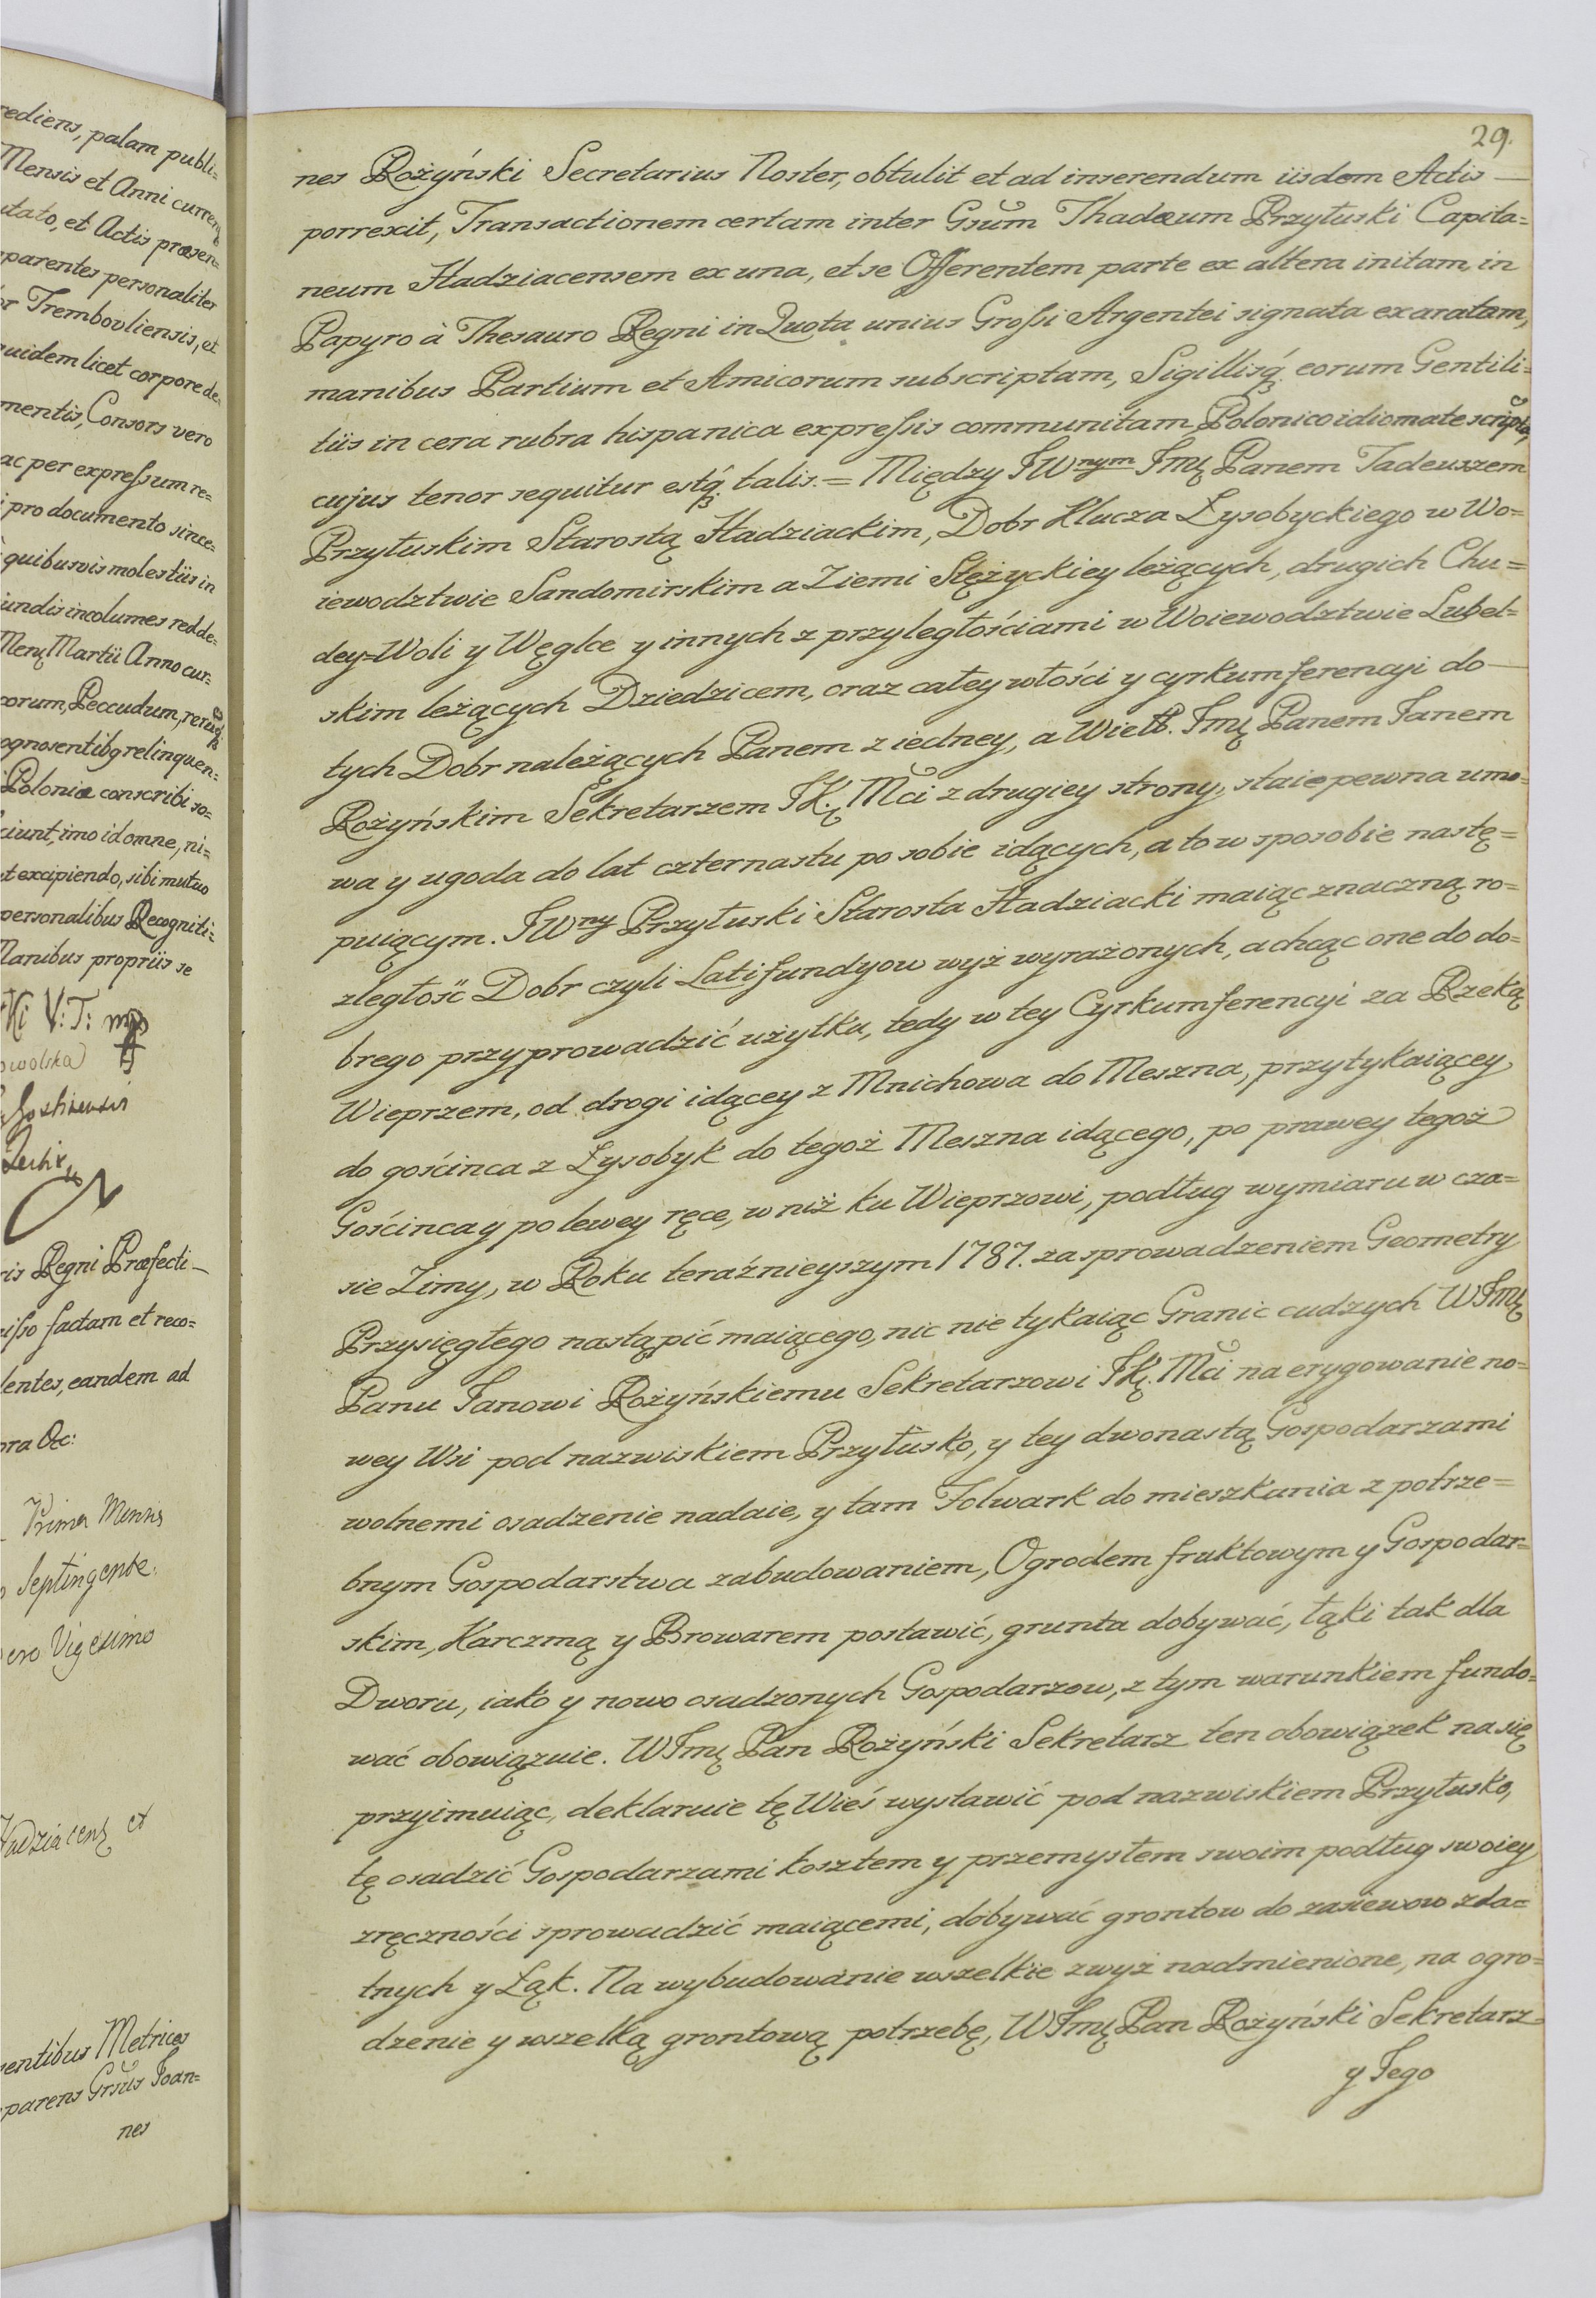 rediens, palam publi=
Mensis et Anni curren
utato, et Actis præsen=
parentes personaliter
or Trembovliensis, et
quidem licet corpore de=
mentis, Consors vero
ac per expressum re=
i pro documento since=
quibusvis molestiis in
iundis incolumes redde=
Mens Martii Anno cur=
corum, Peccudum, rerumq
ognosentibq relinquen=
Poloniæ conscribi so=
ciunt, imo id omne, ni=
et excipiendo, sibi mutuo
personalibus Recogniti=
Manibus propriis se
ki V: T: mp
owolska
ris Regni Præfecti
isso factam et reco=
lentes, eandem ad
ora &c:
Prima Mensis
Septingente.
ero Vigesimo
Hadziacens et
sentibus Metrices
parens Grsus Joan=
nes
29.
nes Rożyński Secretarius Noster, obtulit et ad inserendum iisdem Actis
porrexit, Transactionem certam inter Gsum Thadæum Przyłuski Capita=
neum Hadziacensem ex una, et se Offerentem parte ex altera initam, in
Papyro à Thesauro Regni in Quota unius Grossi Argentei signata exaratam,
manibus Partium et Amicorum subscriptam, Sigillisq eorum Gentili=
tiis in cera rubra hispanica expressis communitam, Polonico idiomate script,
cujus tenor sequitur estq talis. = Między JWnym Jmę Panem Tadeuszem
Przyłuskim Starostą Hadziackim, Dobr Klucza Łysobyckiego w Wo=
iewodztwie Sandomirskim a Ziemi Stężyckiey leżących, drugich Chu=
dey=Woli y Węglce y innych z przyległościami w Woiewodztwie Lubel=
skim leżących Dziedzicem, oraz całey włości y cyrkumferencyi do
tych Dobr należących Panem z iedney, a Wielb. Jmę Panem Janem
Rożyńskim Sekretarzem JK. Mci z drugiey strony, staie pewna umo=
wa y ugoda do lat czternastu po sobie idących, a to w sposobie nastę=
puiącym. JWny Przyłuski Starosta Hadziacki maiąc znaczną ro=
zległość Dobr czyli Latifundyow wyż wyrażonych, a chcąc one do do=
brego przyprowadzić użytku, tedy w tey Cyrkumferencyi za Rzeką
Wieprzem, od drogi idącey z Mnichowa do Meszna, przytykaiącey
do gościnca z Łysobyk do tegoż Meszna idącego, po prawey tegoż
Gościnca y po lewey ręce, w niż ku Wieprzowi, podług wymiaru w cza=
sie Zimy, w Roku teraźnieyszym 1787. za sprowadzeniem Geometry
Przysięgłego nastąpić maiącego, nic nie tykaiąc Granic cudzych WJmę
Panu Janowi Rożyńskiemu Sekretarzowi JK. Mci na erygowanie no=
wey Wsi pod nazwiskiem Przyłusko, y tey dwonastą Gospodarzami
wolnemi osadzenie nadaie, y tam Folwark do mieszkania z potrze=
bnym Gospodarstwa zabudowaniem, Ogrodem fruktowym y Gospodar=
skim, Karczmą y Browarem postawić, grunta dobywać, łąki tak dla
Dworu, iako y nowo osadzonych Gospodarzow, z tym warunkiem fundo=
wać obowiązuie. WJmę Pan Rożyński Sekretarz ten obowiązek na się
przyimuiąc, deklaruie tę Wieś wystawić pod nazwiskiem Przyłusko,
tę osadzić Gospodarzami kosztem y przemysłem swoim podług swoiey
zręczności sprowadzić maiącemi, dobywać grontow do zasiewow zda=
tnych y Łąk. Na wybudowanie wszelkie zwyż nadmienione, na ogro=
dzenie y wszelką grontową potrzebę, WJmę Pan Rożyński Sekretarz
y Jego